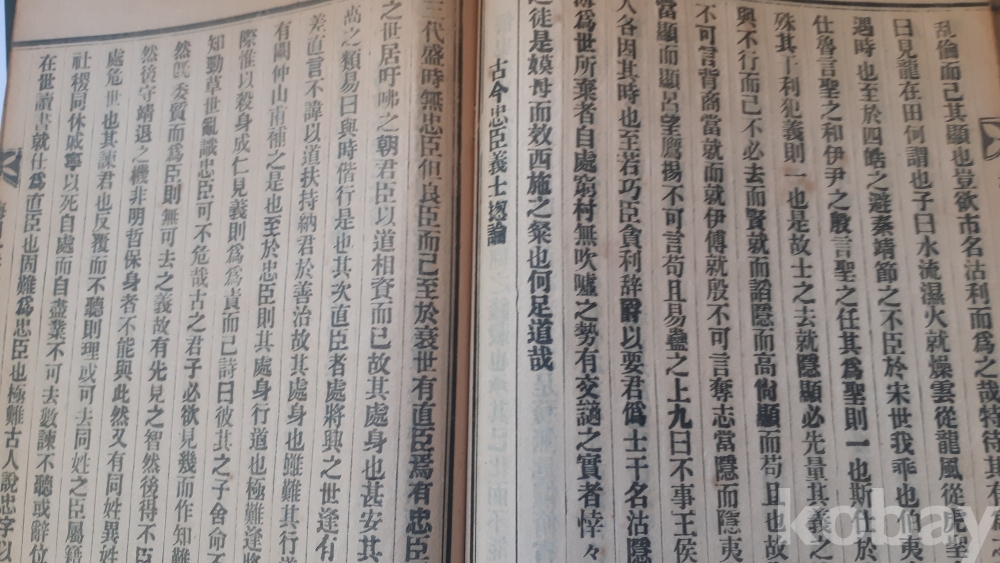 亂倫而已其顯也豈欲市名沽利而爲之哉特待其
曰見龍在田何謂也子曰水流濕火就燥雲從龍風從虎
遇時也至於四皓之避秦靖節之不臣於宋世我乖也伯夷
仕魯言聖之和伊尹之殷言聖之任其爲聖則一也斯仕於
殊其干利犯義則一也是故士之去就隱顯必先量其義之
與不行而已不必去而賢就而謟隱而高尙顯而苟且也故
不可言背商當就而就伊傅就殷不可言奪志當隱而隱夷
當顯而顯呂望鷹揚不可言苟且易蠱之上九曰不事王侯
人各因其時也至若巧臣貪利辭爵以要君僞士干名沽隱
爲世所棄者自處窮村無吹噓之勢有交謫之實者悻々
之徒是嫫母而效西施之粲也何足道哉
古今忠臣義士摠論
三代盛時無忠臣但良臣而已至於衰世有直臣焉有忠臣
之世居吁咈之朝君臣以道相資而已故其處身也甚安其
之類易曰與時偕行是也其次直臣者處將興之世逢有
差直言不諱以道扶持納君於善治故其處身雖難其行道
有闕仲山甫補之是也至於忠臣則其處身行道也極難逢將
際濰以殺身成仁見義則爲爲貴而已詩曰彼其之子舍命不
知勁草世亂識忠臣可不危哉古之君子必欲見幾而作知難
然旣委質而爲臣則無可去之義故有先見之智然後得不臣
然後守靖退之機非明哲保身者不能與此然又有同姓異姓
處危世也其諫君也反覆而不聽則理或可去同姓之臣屬籍
社稷同休戚寧以死自處而自盡業不可去數諫不聽或辭位
在世讀書就仕爲直臣也固難爲忠臣也極難古人說忠字以
kobay